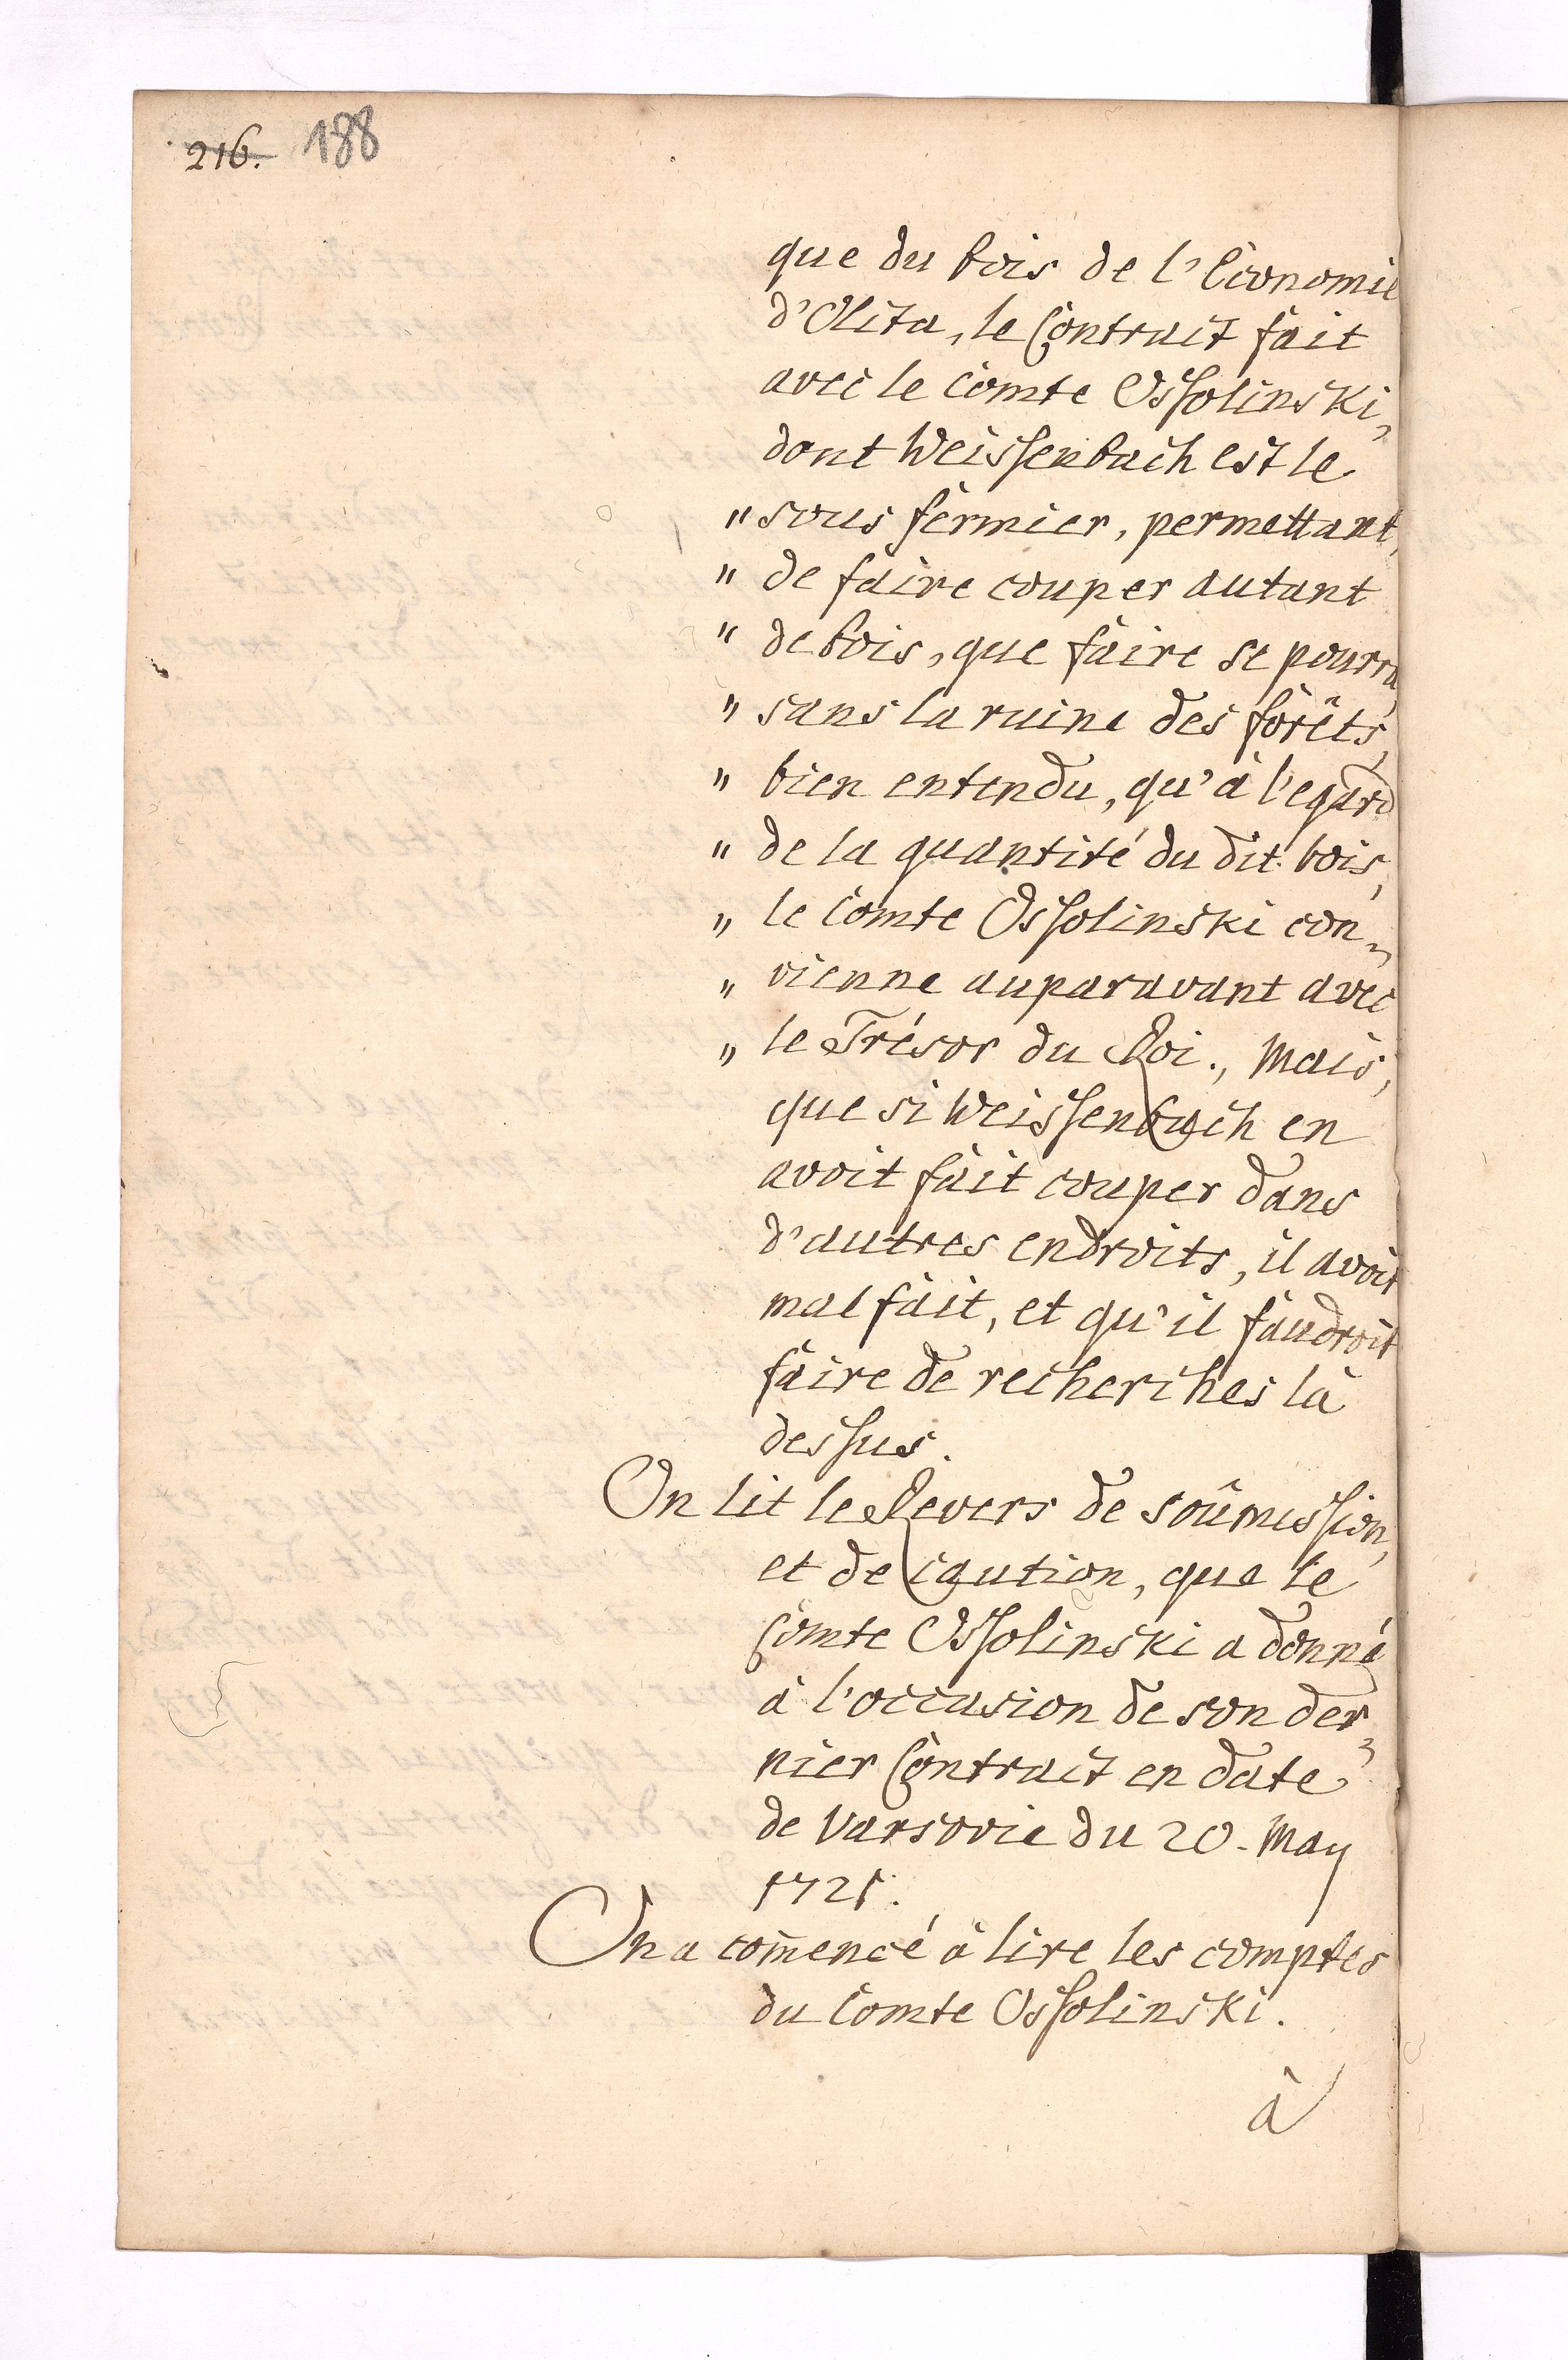 216. 188
que du bois de l'Economie
d'Olita, le Contract fait
avec le Comte Ossolinski,
dont Weissenbach est le
" sous fermier, permettant,
" de faire couper autant
" de bois, que faire se pourra,
" sans la ruine des forêts,
" bien entendu, qu'à l'egard
" de la quantité du dit bois,
" le Comte Ossolinski con-
" vienne auparavant avec
" le Trésor du Roi., Mais,
que si Weissenbach en
avoit fait couper dans
d'autres endroits, il avoit
mal fait, et qu'il faudroit
faire de recherches là
dessus.
On lit le Revers de soûmission,
et de caution, que le
Comte Ossolinski a donné
à l'occasion de son der-
nier Contract en date
de Varsovie du 20. May
1721.
On a com̄encé à lire les comptes
du Comte Ossolinski.
à